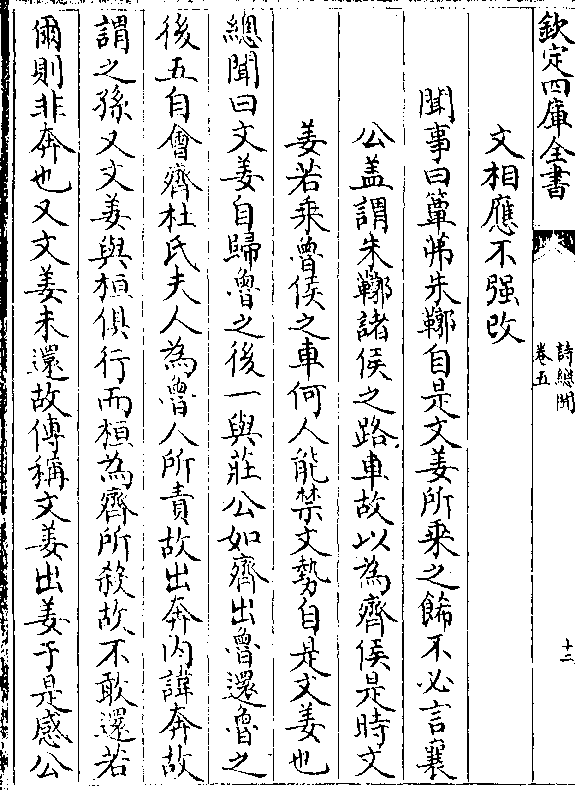 欽定四庫全書
詩總聞
卷五
十二
文相應不强改
聞事曰簟茀朱鞹自是文姜所乗之餙不必言襄
公盖謂朱鞹諸侯之路車故以為齊侯是時文
姜若乗魯侯之車何人能禁文勢自是文姜也
總聞曰文姜自歸魯之後一與莊公如齊出魯還魯之
後五自會齊杜氏夫人為魯人所責故出奔内諱奔故
謂之孫又文姜與桓俱行而桓為齊所殺故不敢還若
爾則非奔也又文姜未還故傳稱文姜出姜于是感公